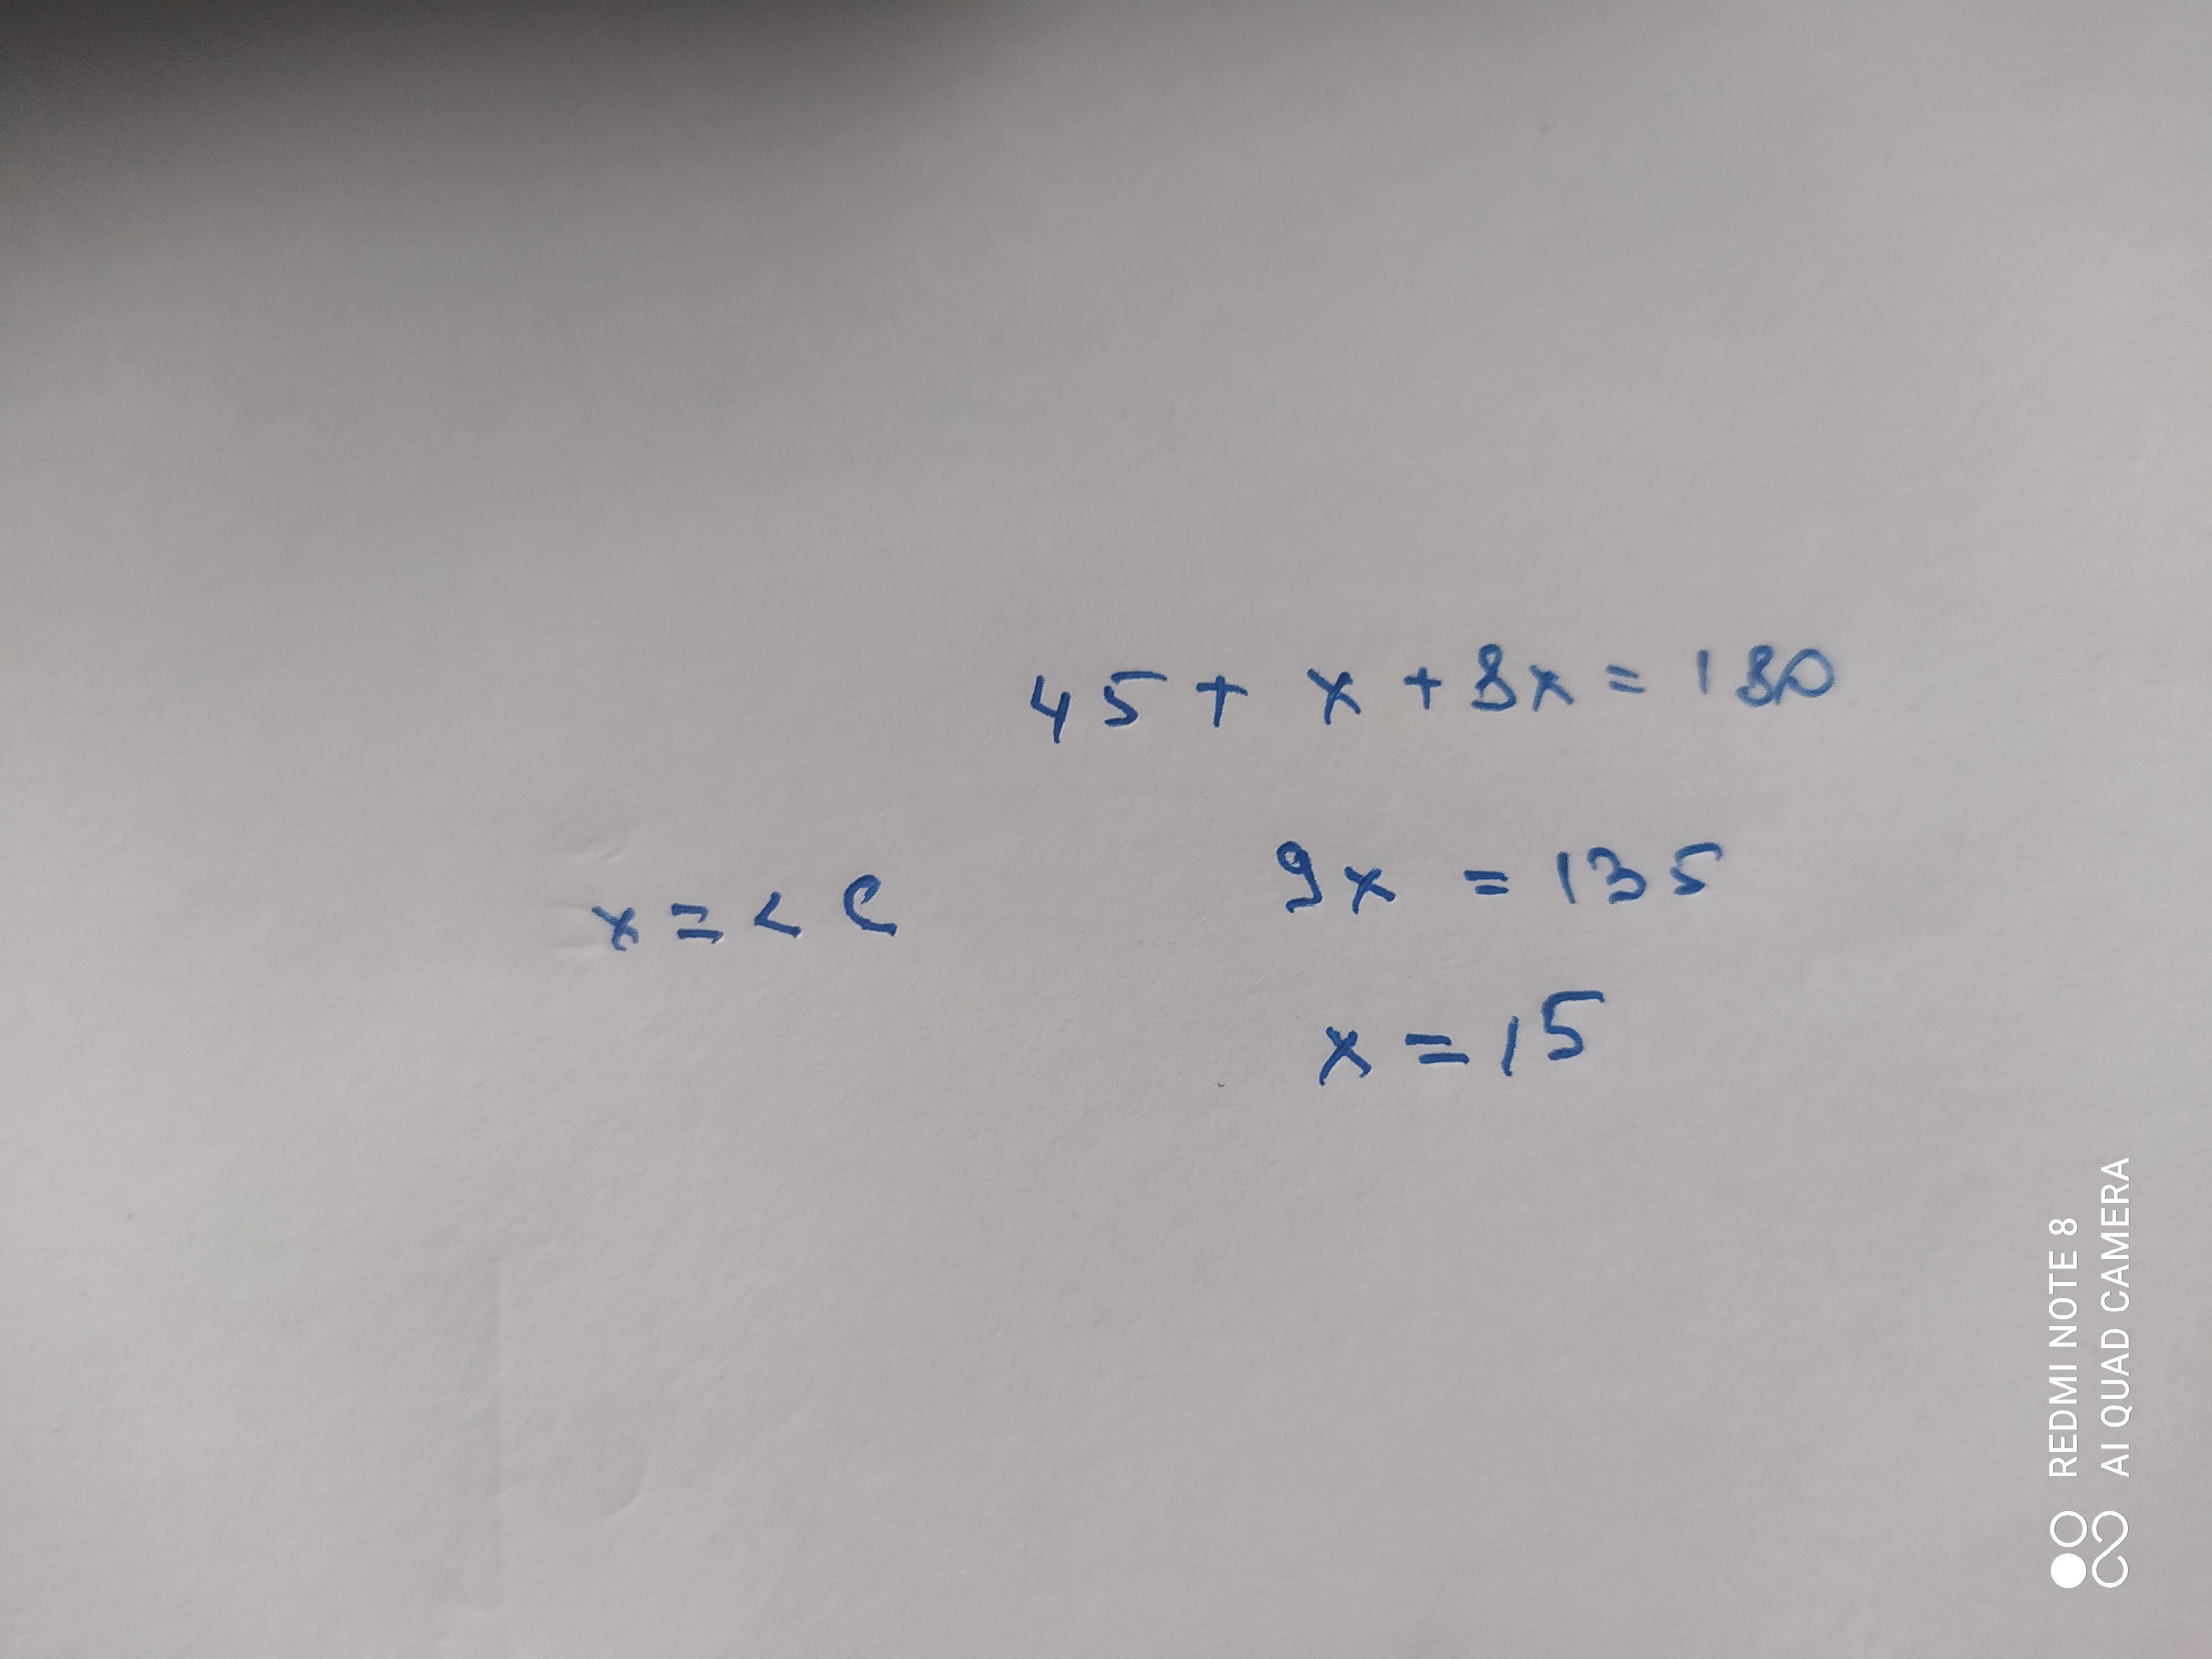 45 + x + 8x = 180
x = < C
9x = 135
x = 15
REDMI NOTE 8
AI QUAD CAMERA